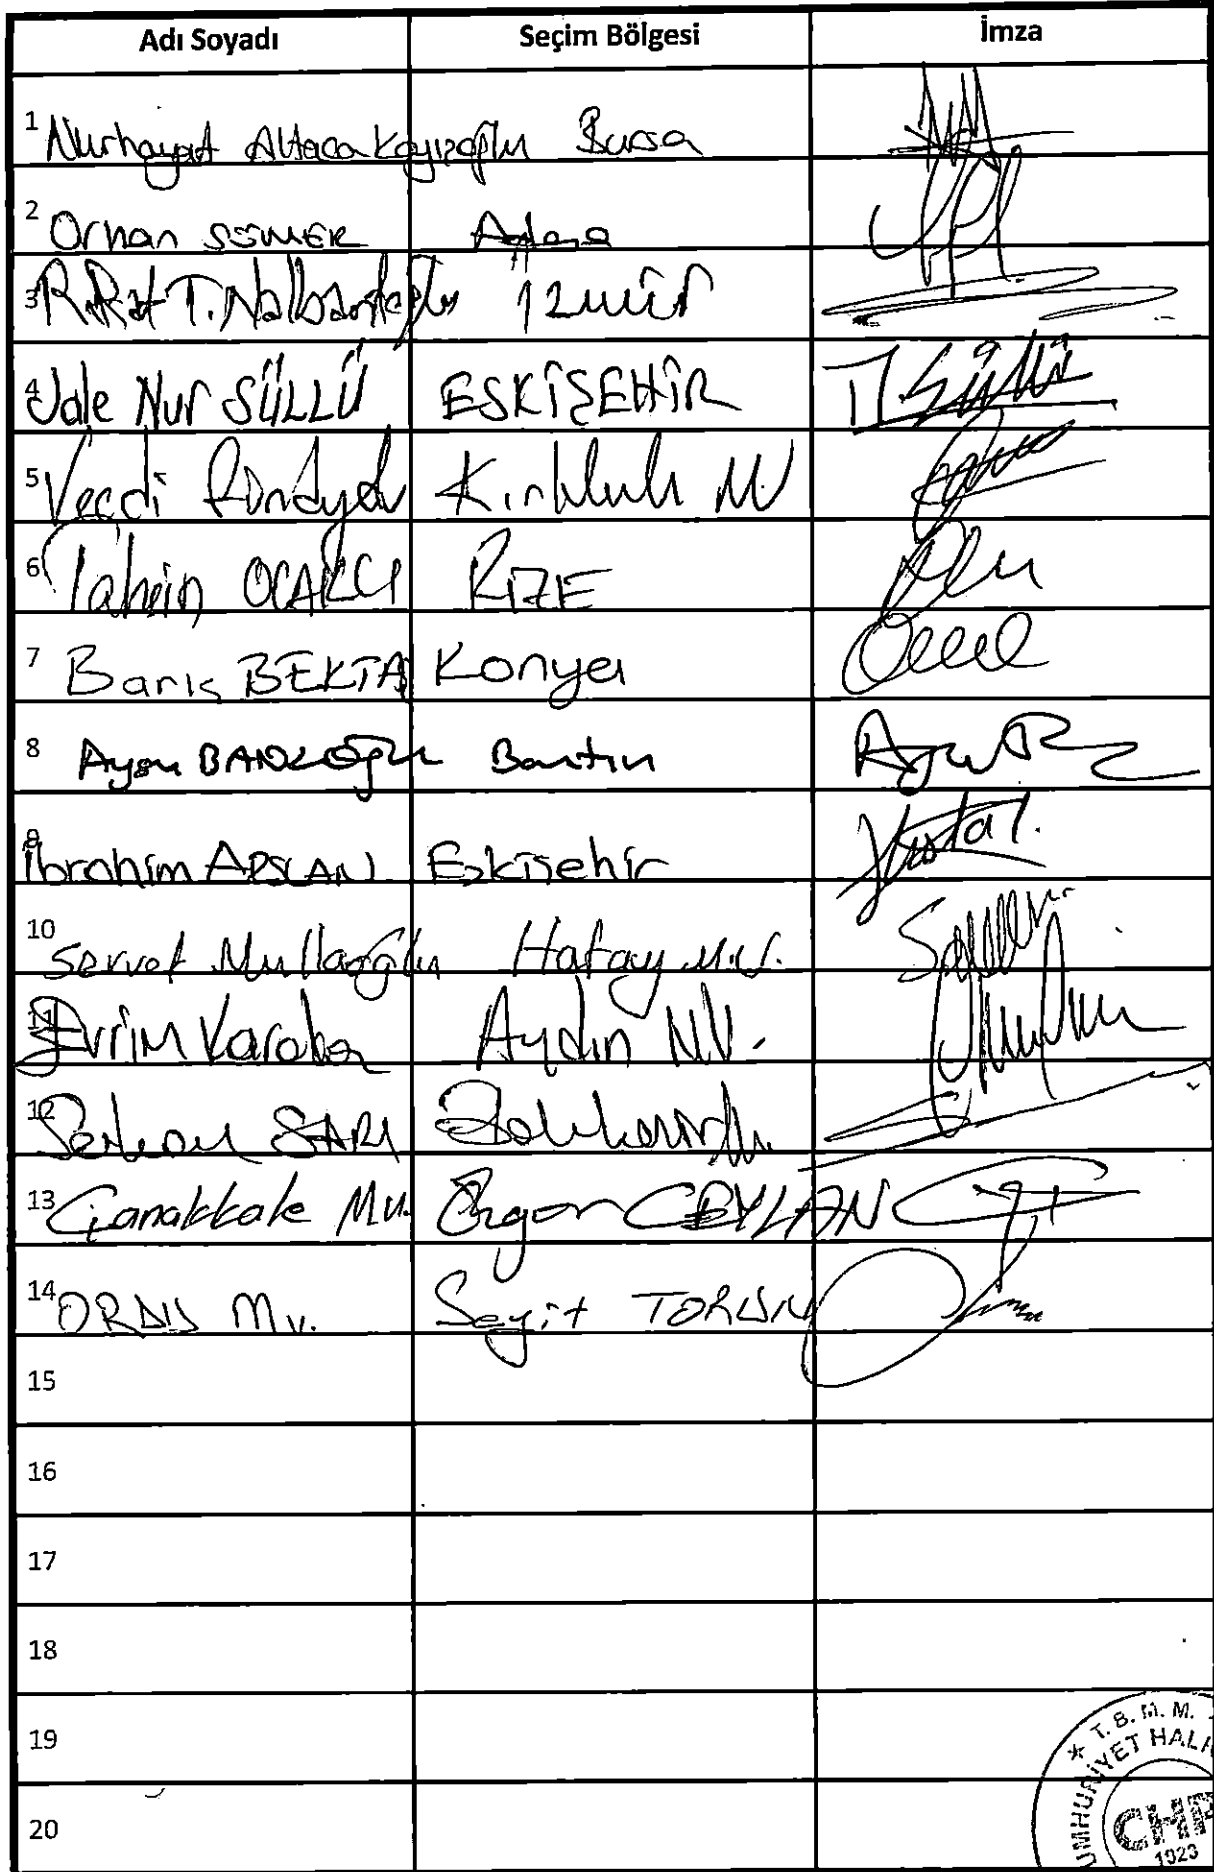 Adı Soyadı Seçim Bölgesi İmza
1 Nurhayat Altaca Kayışoğlu Bursa
2 Orhan SÜMER Adana
3 Rıfat T. Nalbantoğlu İzmir
4 Jale Nur SÜLLÜ ESKİŞEHİR
5 Vecdi Gündoğdu Kırklareli MV
6 Tahsin OCAKLI RİZE
7 Barış BEKTAŞ Konya
8 Aysu BANKOĞLU Bartın
9 İbrahim ARSLAN Eskişehir
10 Servet Mullaoğlu Hatay M.V.
11 Evrim Karakoz Aydın MV.
12 Serkan SARI Balıkesir
13 Çanakkale Mv. Özgür CEYLAN
14 ORDU Mv. Seyit TORUN
15
16
17
18
19
20
* T. B. M. M.
UMHURİYET HAL
CHP
1923